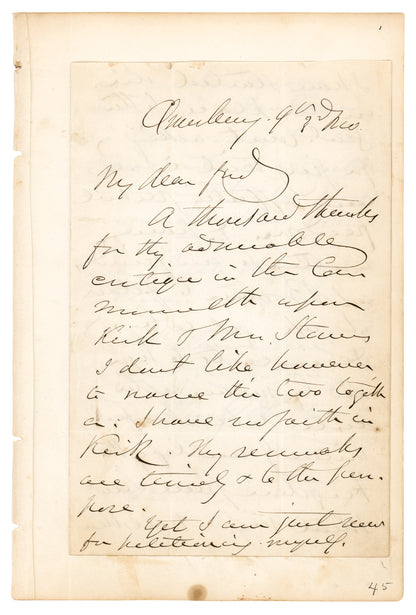 Amesbury 9th 3d mo.
My dear frd
A thousand thanks
for thy admirable
critique in the Com
monwlth upon
Kirk & Mrs. Stowe
I don't like however
to name the two togeth
er. I have no faith in
Kirk. Thy remarks
are timely & to the pur-
pose.
Yet I am just now
for petitioning myself.
45